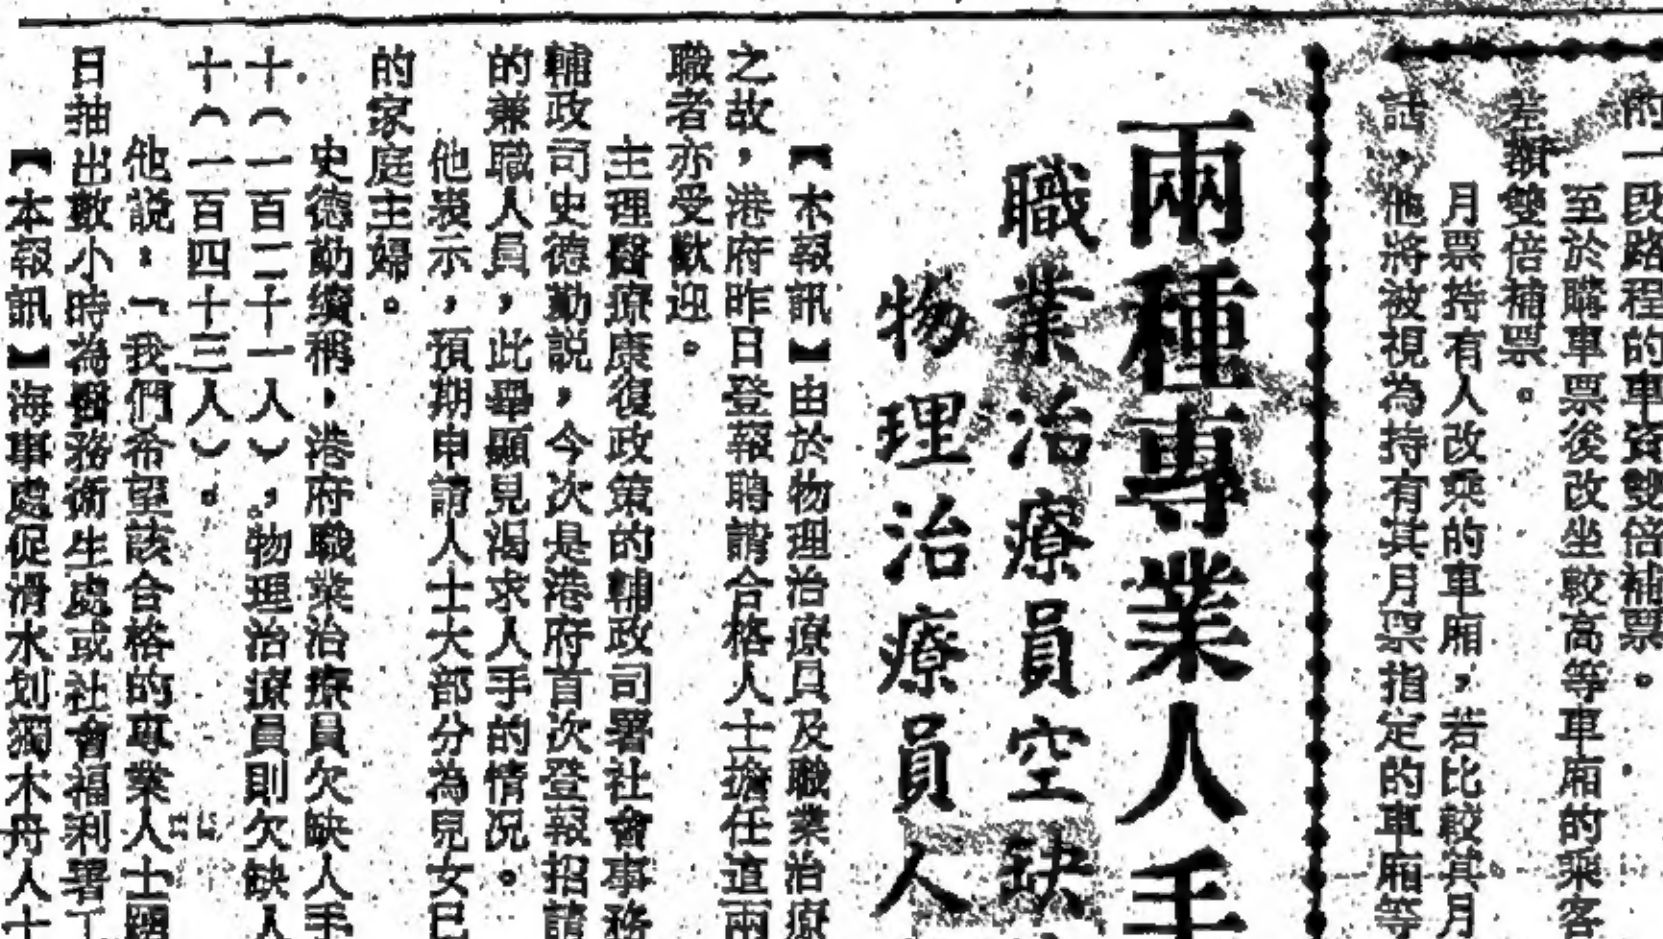 的一段路程的車資雙倍補票。
至於購車票後改坐較高等車廂的乘客
差額雙倍補票。
月票持有人改乘的車廂，若比較其月
話，他將被視為持有其月票指定的車廂等
兩種專業人手
職業治療員空缺
物理治療員人
【本報訊】由於物理治療員及職業治療
之故，港府昨日登報聘請合格人士擔任這兩
職者亦受歡迎。
主理醫療康復政策的輔政司署社會事務
輔政司史德勤說，今次是港府首次登報招請
的兼職人員，此舉顯見渴求人手的情況。
他表示，預期申請人士大部分為兒女已
的家庭主婦。
史德勤續稱，港府職業治療員欠缺人手
十（一百二十一人），物理治療員則欠缺人
十（一百四十三人）。
他說：「我們希望該合格的專業人士
日抽出數小時為醫務衛生處或社會福利署工
【本報訊】海事處促滑水划獨木舟人士